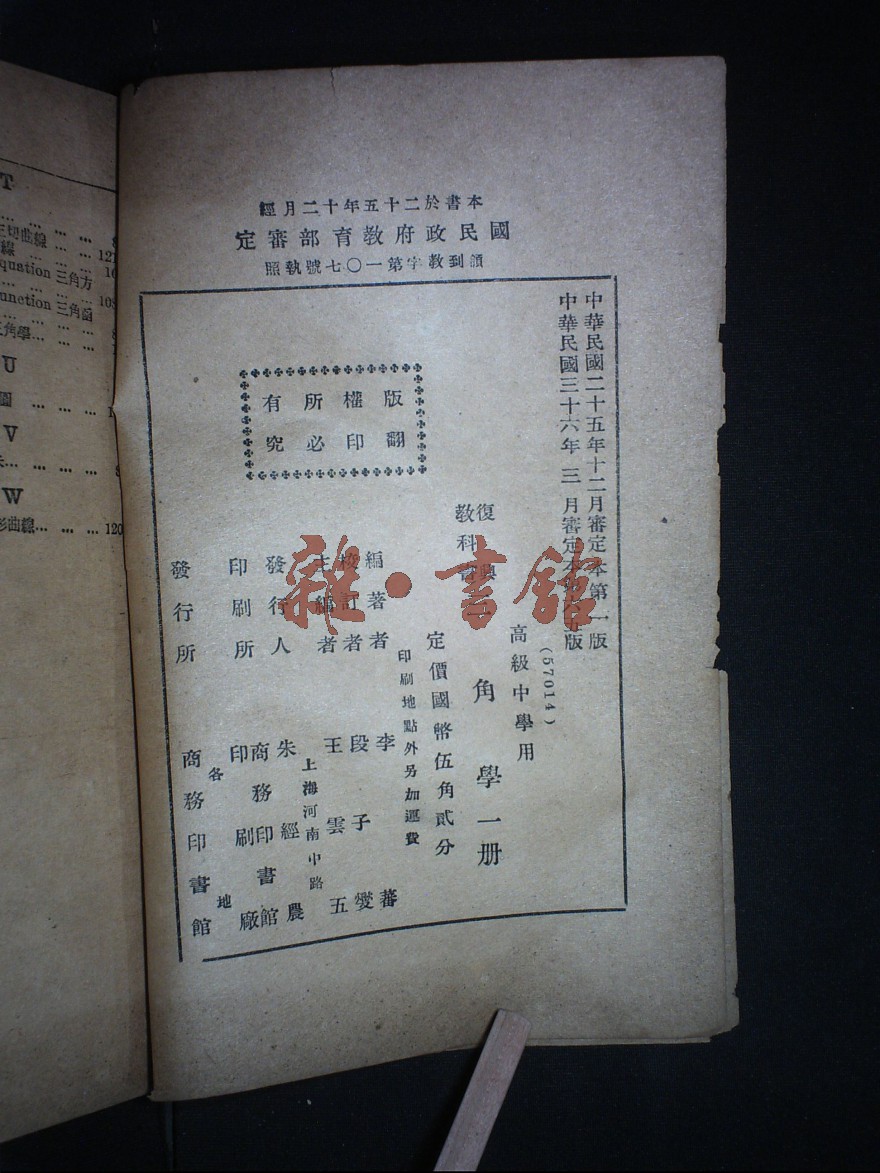 本書於二十五年十二月經
國民政府教育部審定
領到教字第一〇七號執照
中華民國二十五年十二月審定本第一版
中華民國三十六年三月審定本第六五版
(57014)
高級中學用
復興教科書 三角學一册
定價國幣伍角貳分
印刷地點外另加運費
版權所有
翻印必究
編著者 李蕃
校訂者 段子燮
主編者 王雲五
上海河南中路
發行人 朱經農
印刷所 商務印書館印刷廠
各地
發行所 商務印書館
雜·書館
T
三切曲線 ... ...
線 ... ... ... 121
quation 三角方
unction 三角函
... ... ... 108
三角學... ... ...
U
圖 ... ... ...
V
W
形曲線... ... ... 120